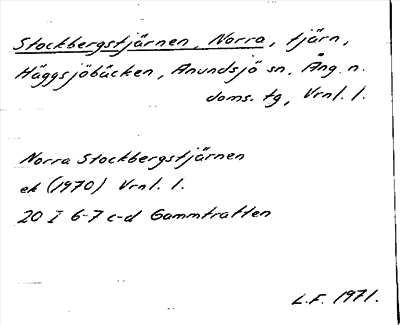 Stockbergstjärnen, Norra, tjärn,
Häggsjöbäcken, Anundsjö sn, Ång. n.
doms. tg, Vrnl. l.
Norra Stockbergstjärnen
ek (1970) Vrnl. l.
20 I 6-7 c-d Gammtratten
L.F. 1971.